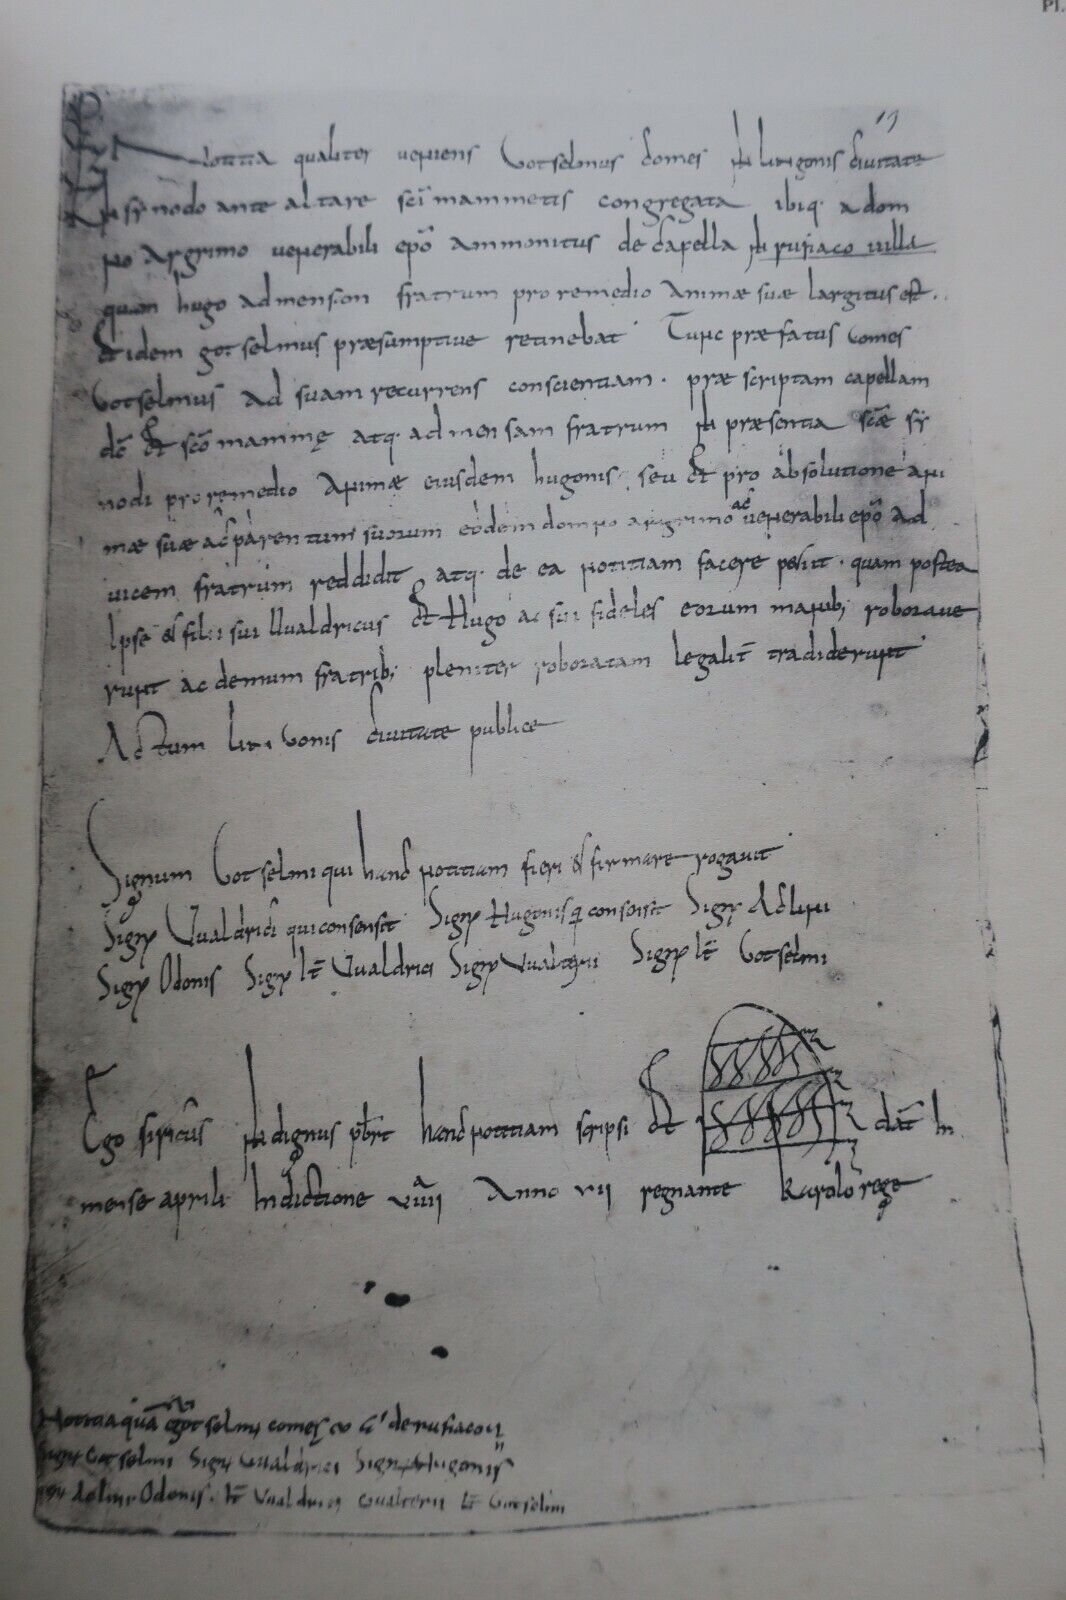 Pl.
Notitia qualiter veniens Gotselmus comes in lingonis civitate
in synodo ante altare sci mammetis congregata ibiq. a dom
no Argrimo venerabili epo ammonitus de capella in rufiaco villa
quam hugo ad mensam fratrum pro remedio animæ suæ largitus est.
et idem gotselmus præsumptive retinebat Tunc præfatus comes
Gotselmus ad suam recurrens conscientiam. præscriptam capellam
dō et scō mamme atq. ad mensam fratrum in præsentia scæ sy
nodi pro remedio animæ eiusdem hugonis. seu et pro absolutione ani
mæ suæ ac parentum suorum eodem domno argrimo ac venerabili epo ad
vicem fratrum reddidit atq. de ea notitiam facere petiit. quam postea
Ipse & filii sui Uualdricus et Hugo ac sui fideles eorum manib; roborave
runt ac demum fratrib; pleniter roboratam legalit tradiderunt
Actum lingonis civitate publice
Signum Gotselmi qui hanc notitiam fieri & firmare rogavit
Sign Uualdrici qui consensit Sign Hugonis q consensit Sign Adlini
Sign Odonis Sign It Uualdrici Sign Uualterii Sign It Gotselmi
Ego siricus indignus pbrt hanc notitiam scripsi et dat In
mense aprili Indictione viiii Anno vii regnante Karolo rege
Notitia quā Gotselm comes de rufiaco
Sign Gotselmi Sign Uualdrici Sign Hugonis
Adlini Odonis. It Uualdrici Gualterii It Gotselmi